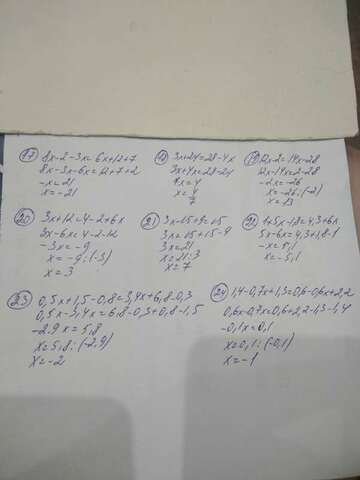 17) 8x-2-3x=6x+12+7
8x-3x-6x=12+7+2
-x=21
x=-21
18) 3x+24=28-4x
3x+4x=28-24
7x=4
x=4/7
19) 12x-2=14x-28
12x-14x=2-28
-2x=-26
x=-26:(-2)
x=13
20) 3x+12=4-2+6x
3x-6x=4-2-12
-3x=-9
x=-9:(-3)
x=3
21) 3x-15+9=15
3x=15+15-9
3x=21
x=21:3
x=7
4,5x-1,8=4,3+6x
5x-6x=4,3+1,8-1
-x=5,1
x=-5,1
23) 0,5x+1,5-0,8=3,4x+6,8-0,3
0,5x-3,4x=6,8-0,3+0,8-1,5
-2.9x=5,8
x=5,8:(-2.9)
x=-2
24) 1,4-0,7x+1,3=0,6-0,6x+2,2
0,6x-0,7x=0,6+2,2-1,3-1,4
-0,1x=0,1
x=0,1:(-0,1)
x=-1